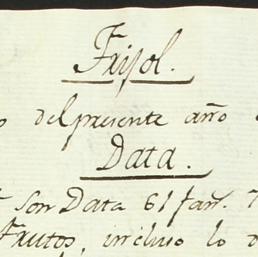 Frisol.
o del presente año
Data.
son Data 61 fan.
Frutos, incluso lo